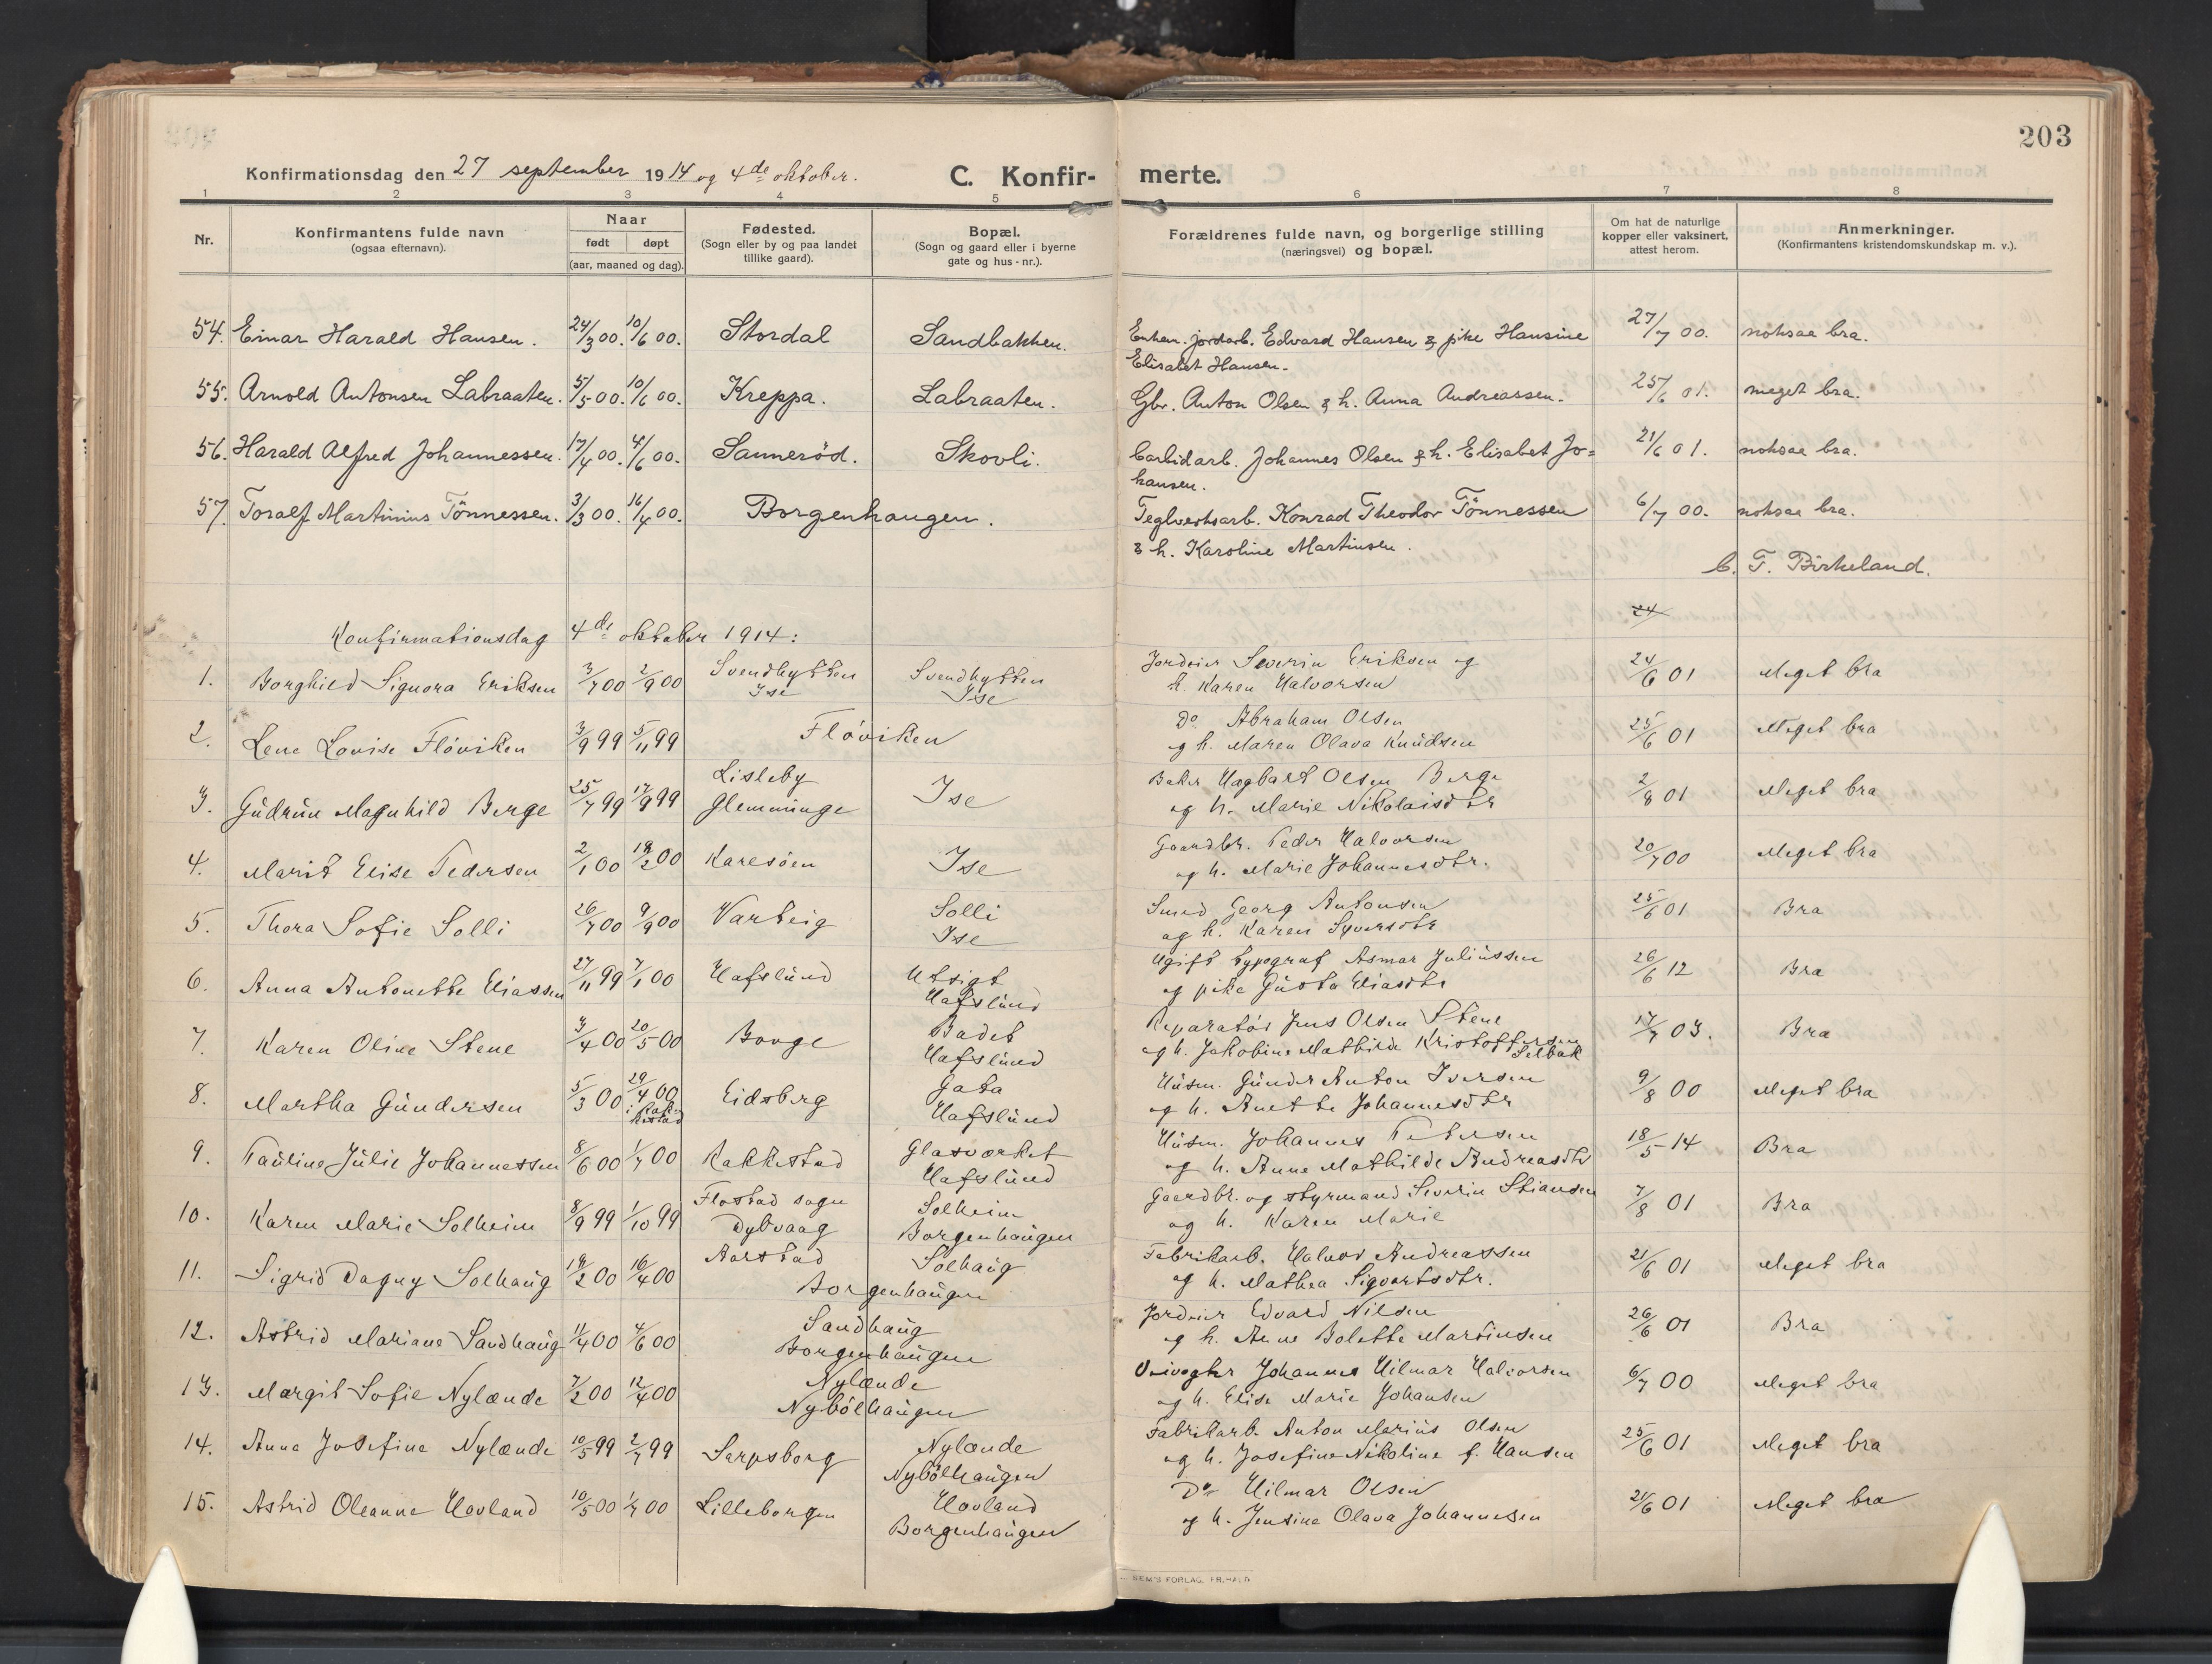 203
Konfirmationsdag den 27 september 1914 og 4de oktober. C. Konfirmerte.
1 2 3 4 5 6 7 8
Nr. Konfirmantens fulde navn (ogsaa efternavn). Naar født døpt (aar, maaned og dag). Fødested. (Sogn eller by og paa landet tillike gaard). Bopæl. (Sogn og gaard eller i byerne gate og hus-nr.). Forældrenes fulde navn, og borgerlige stilling (næringsvei) og bopæl. Om hat de naturlige kopper eller vaksinert, attest herom. Anmerkninger. (Konfirmantens kristendomskundskap m. v.).
54. Einar Harald Hansen. 24/3 00. 10/6 00. Stordal Sandbakken. Enkem. jordarb. Edvard Hansen & pike Hansine 27/7 00. noksaa bra.
Elisabet Hansen.
55. Arnold Antonsen Labraaten. 5/5 00. 10/6 00. Kreppa. Labraaten. Gbr. Anton Olsen & h. Anna Andreassen. 25/6 01. meget bra.
56. Harald Alfred Johannessen. 17/4 00. 4/6 00. Sannerød. Skovli. Carbidarb. Johannes Olsen & h. Elisabet Jo= 21/6 01. noksaa bra.
hansen.
57. Toralf Martinius Tönnessen. 3/3 00. 16/4 00. Borgenhaugen. Teglverksarb. Konrad Theodor Tönnessen 6/7 00. noksaa bra.
& h. Karoline Martinsen.
C. T. Birkeland.
24
Konfirmationsdag 4de oktober 1914:
1. Borghild Signora Eriksen 3/7 00 2/9 00 Svendhytten Svendhytten Jordeier Severin Eriksen og 24/6 01 Meget bra
Ise Ise h. Karen Halvorsen
2. Lene Lovise Flöviken 3/9 99 5/11 99 Flöviken Do Abraham Olsen 25/6 01 Meget bra
og h. Maren Olava Knudsen
3. Gudrun Magnhild Berge 25/7 99 17/9 99 Lisleby Ise Baker Hagbart Olsen Berge 2/8 01 Meget bra
Glemminge og h. Marie Nikolaisdtr
4. Marit Elise Pedersen 2/1 00 18/2 00 Karesöen Ise Gaardbr. Peder Halvorsen 20/7 00 Meget bra
og h. Marie Johannesdtr.
5. Thora Sofie Solli 26/7 00 9/9 00 Varteig Solli Smed Georg Antonsen 25/6 01 Bra
Ise og h. Karen Syversdtr
6. Anna Antonette Eliassen 27/11 99 7/1 00 Hafslund Utsigt Ugift typograf Asmar Juliussen 26/6 12 Bra
Hafslund og pike Gusta Eliasdtr
7. Karen Oline Stene 3/4 00 20/5 00 Borge Badet Reparatör Jens Olsen Stene 17/7 03. Bra
Hafslund og h. Jakobine Mathilde Kristoffersen
Selbak
8. Martha Gundersen 5/3 00 29/4 00 Eidsberg Gata Husm. Gunder Anton Iversen 9/8 00 Meget bra
i Rakkestad Hafslund og h. Anette Johannesdtr
9. Pauline Julie Johannessen 8/6 00 1/7 00 Rakkestad Glasværket Husm. Johannes Petersen 18/5 14 Bra
Hafslund og h. Anne Mathilde Andreasdtr
10. Karen Marie Solheim 8/9 99 1/10 99 Flostad sogn Solheim Gaardbr. og styrmand Severin Stiansen 7/8 01 Bra
Dybvaag Borgenhaugen og h. Karen Marie
11. Sigrid Dagny Solhaug 14/2 00 16/4 00 Aarstad Solhaug Fabrikarb. Halvor Andreassen 21/6 01 Meget bra
Borgenhaugen og h. Mathea Sigvartsdtr.
12. Astrid Mariane Sandhaug 11/4 00 4/6 00 Sandhaug Jordeier Edvard Nilsen 26/6 01 Bra
Borgenhaugen og h. Anne Bolette Martinsen
13. Margit Sofie Nylænde 7/2 00 12/4 00 Nylænde Veivogter Johannes Hilmar Halvorsen 6/7 00 Meget bra
Nybölhaugen og h. Elise Marie Johansen
14. Anna Josefine Nylænde 10/5 99 2/7 99 Sarpsborg Nylænde Fabrikarb. Anton Marius Olsen 25/6 01 Meget bra
Nybölhaugen og h. Josefine Nikoline f. Hansen
15. Astrid Oleanne Hovland 10/5 00 1/7 00 Lilleborgen Hovland Do Hilmar Olsen 21/6 01 Meget bra
Borgenhaugen og h. Jensine Olava Johannesen
SEM'S FORLAG, FR.HALD